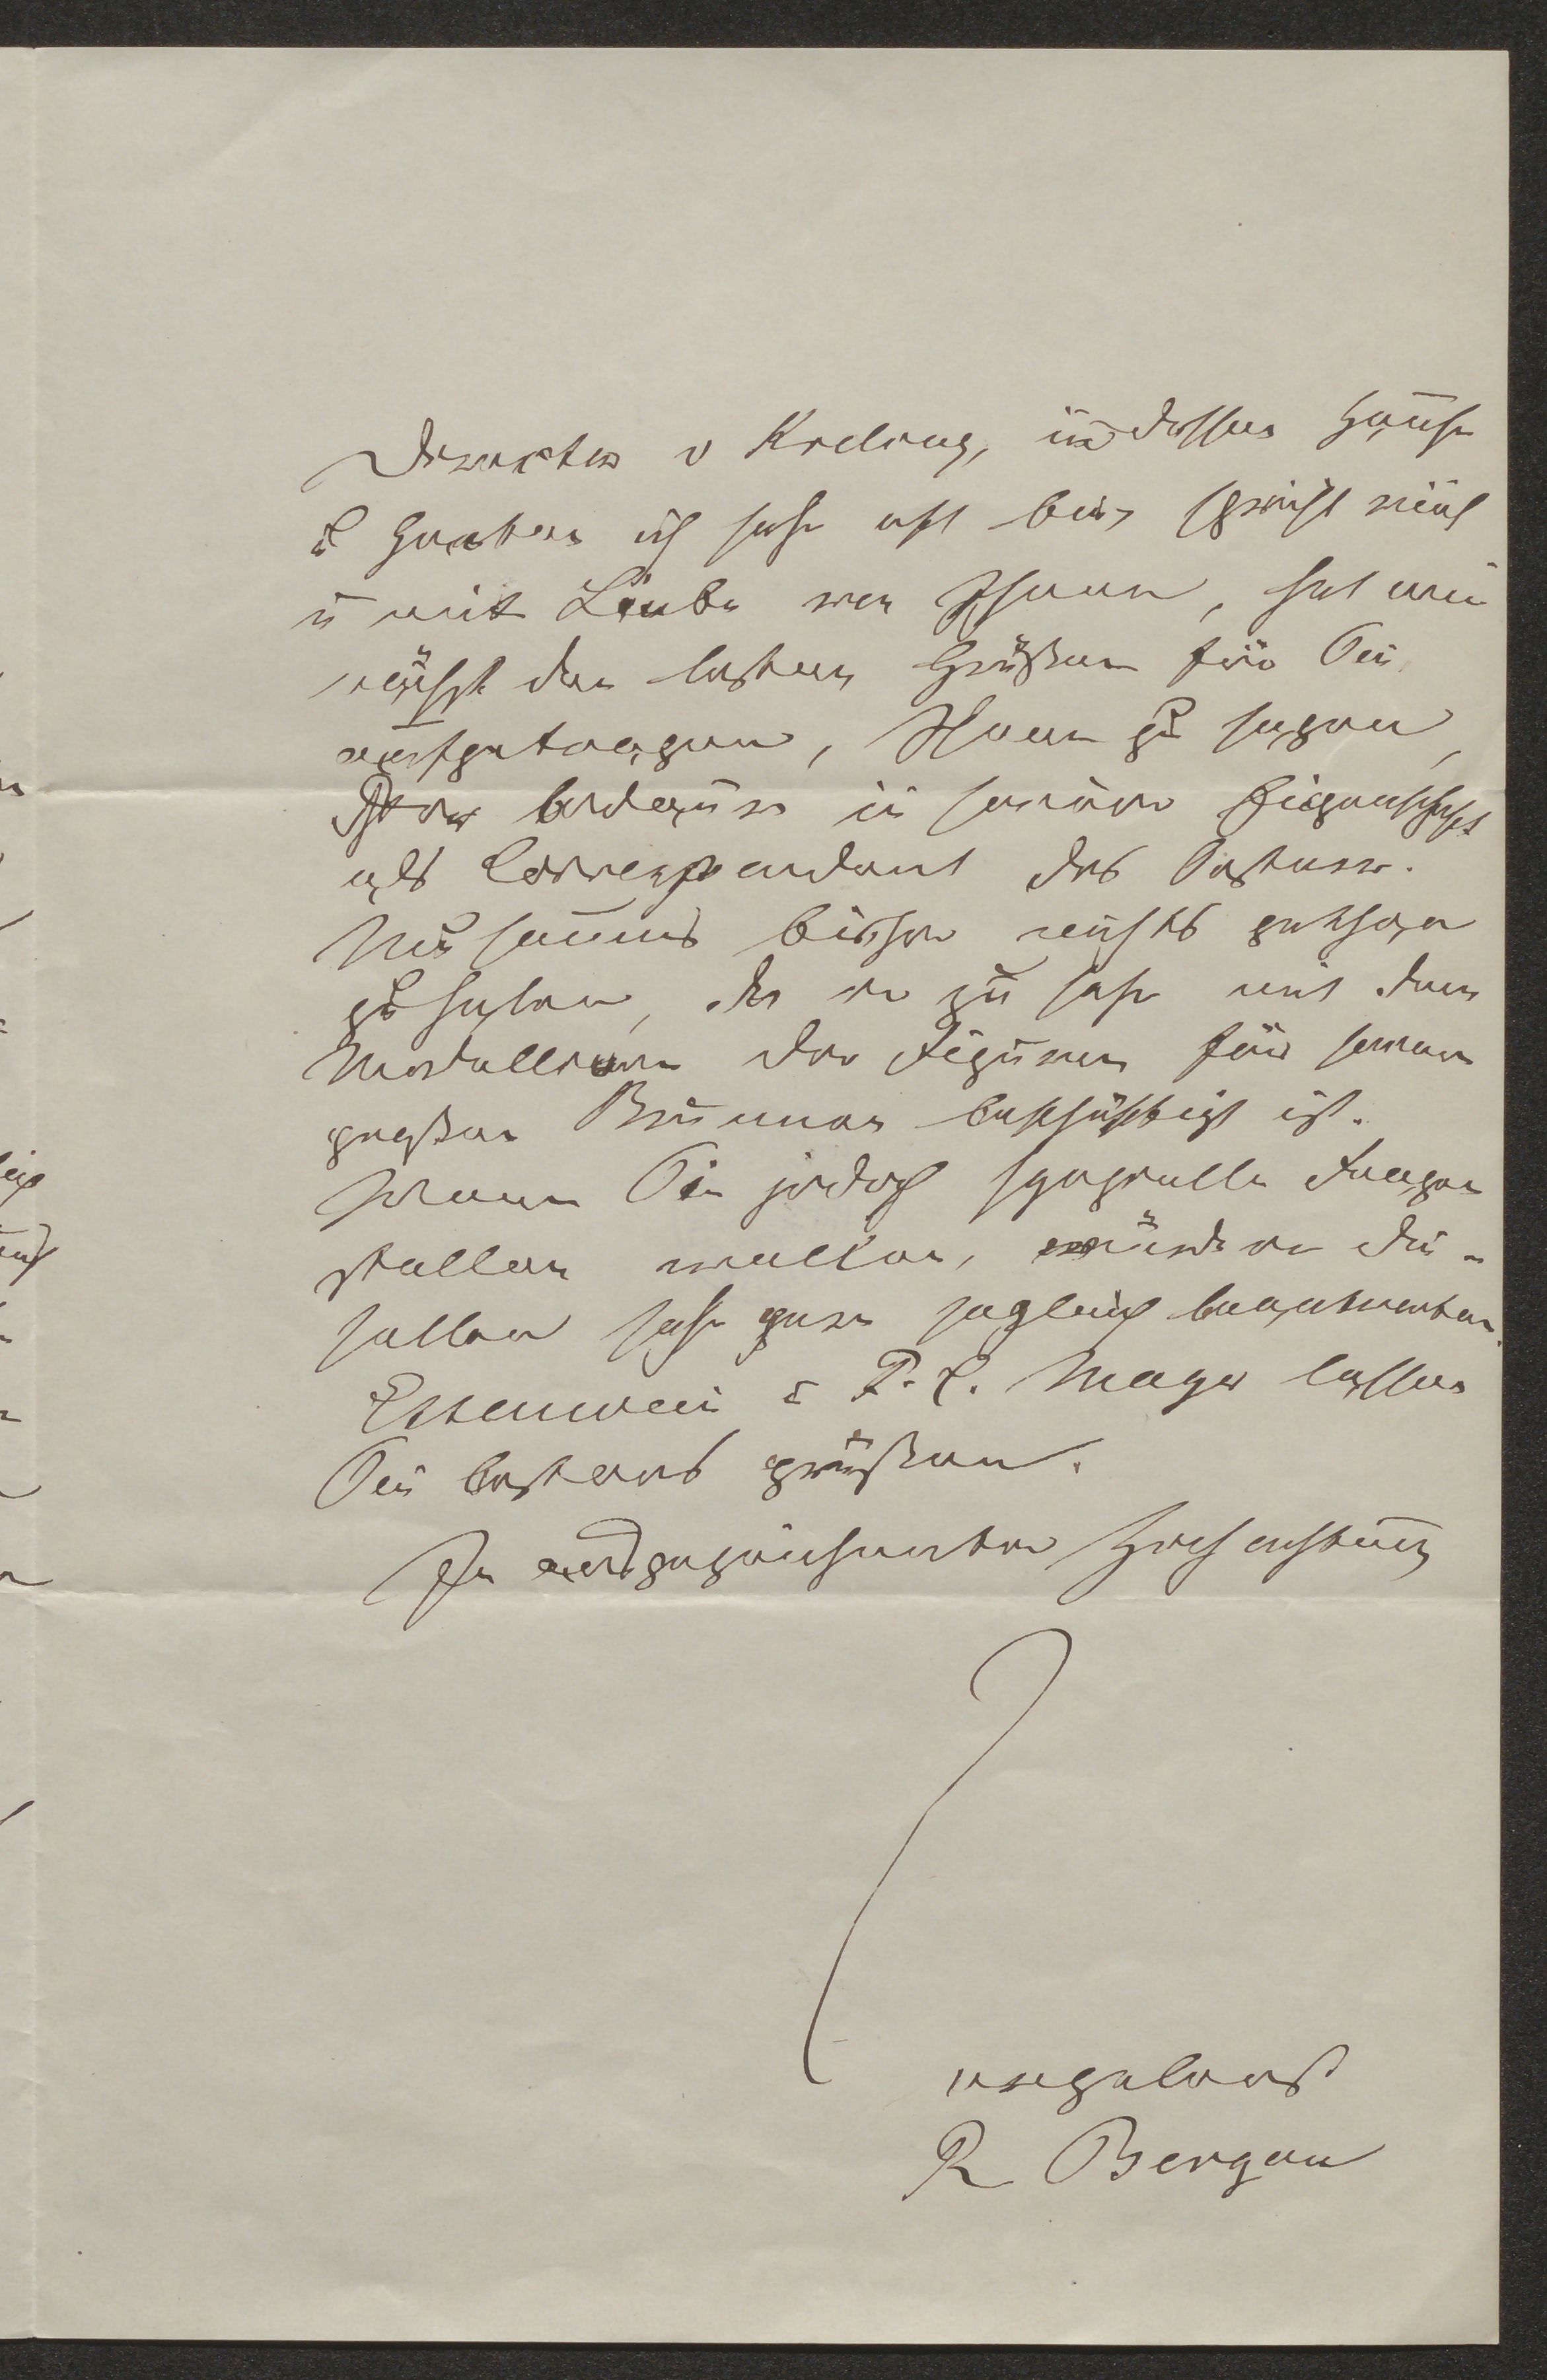 Director v Kreling, in dessen Hause
& Garten ich sehr oft bin, spricht viel
u mit Liebe von Ihnen, hat mir
nächst den besten Grüßen für Sie
aufgetragen, Ihnen zu sagen,
er bedauere in seiner Eigenschaft
als Correspondent des Oesterr.
Museums bisher nichts gethan
zu haben, da er zu sehr mit dem
Modelliren der Figuren für seinen
großen Brunnen beschäftigt ist.
Wenn Sie jedoch specielle Fragen
stellen wollen, würde er die-
selben sehr gern sogleich beantworten.
Essenwein & F. C. Mayer lassen
Sie bestens grüßen.
In ausgezeichneter Hochachtung
ergebenst
R Bergau